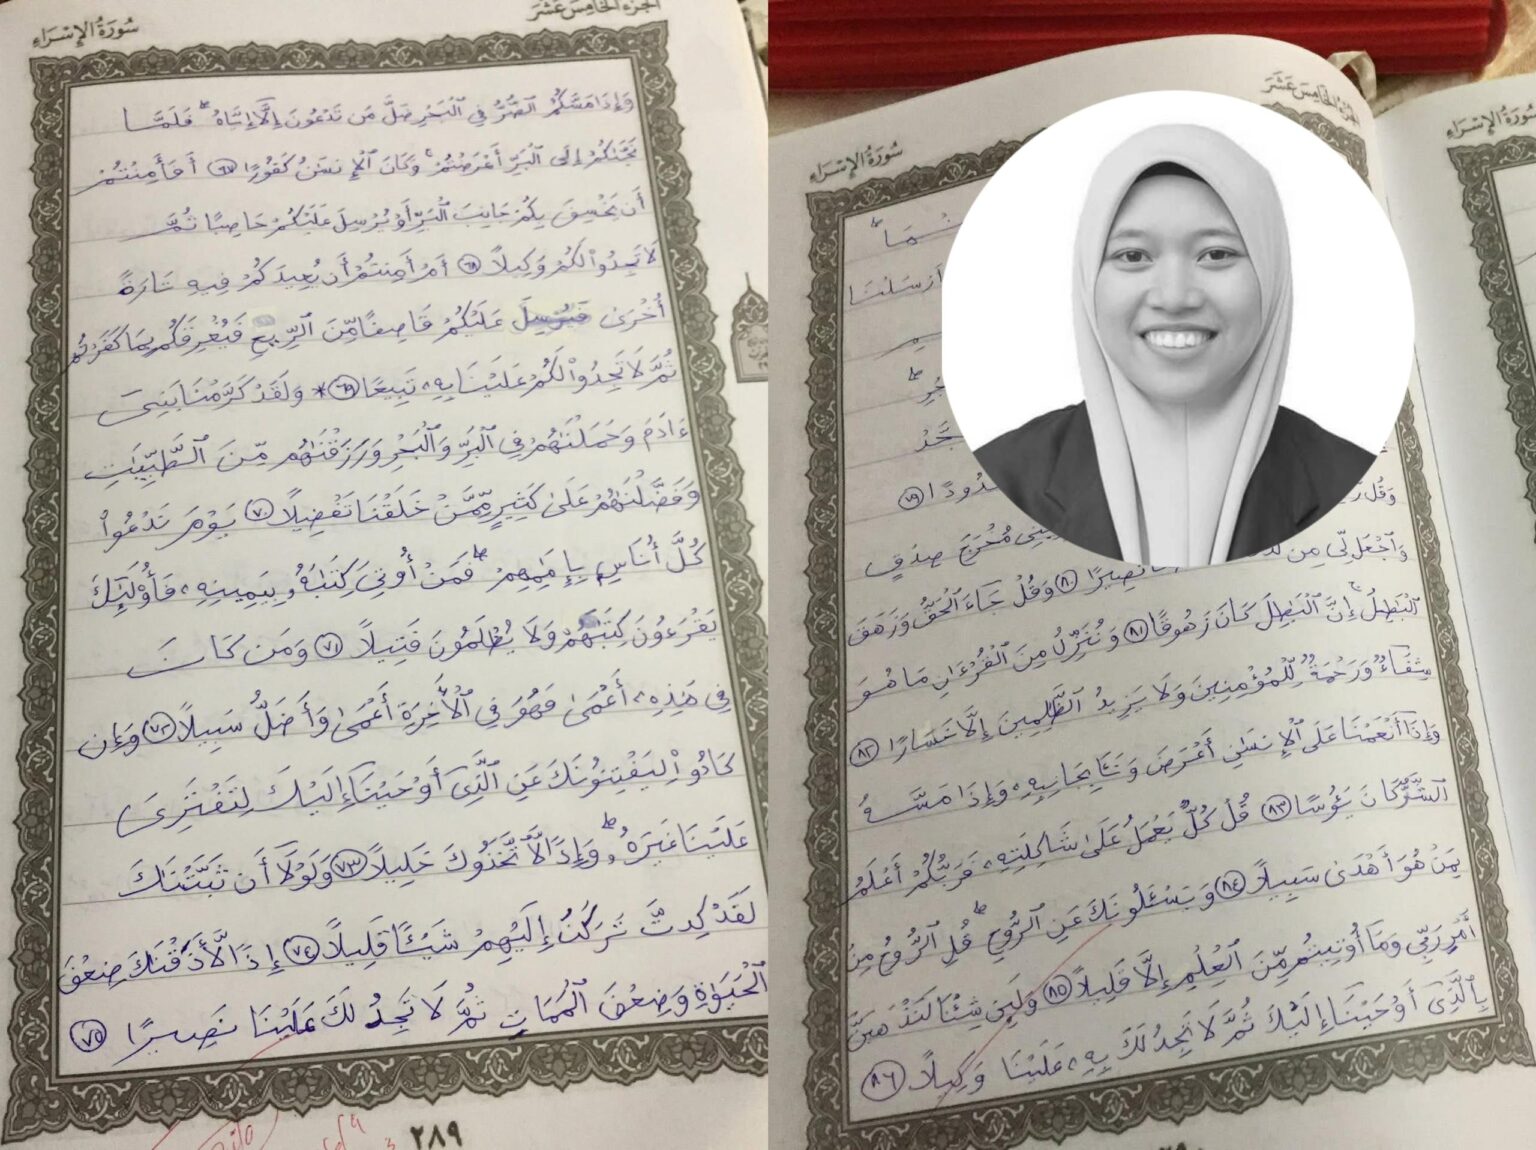 سُورَةُ الإِسْرَاءِ
الجُزْءُ الخَامِسَ عَشَرَ
وَإِذَا مَسَّكُمُ ٱلضُّرُّ فِي ٱلْبَحْرِ ضَلَّ مَن تَدْعُونَ إِلَّآ إِيَّاهُ ۖ فَلَمَّا
نَجَّىٰكُمْ إِلَى ٱلْبَرِّ أَعْرَضْتُمْ ۚ وَكَانَ ٱلْإِنسَٰنُ كَفُورًا ٦٧ أَفَأَمِنتُمْ
أَن يَخْسِفَ بِكُمْ جَانِبَ ٱلْبَرِّ أَوْ يُرْسِلَ عَلَيْكُمْ حَاصِبًا ثُمَّ
لَا تَجِدُوا۟ لَكُمْ وَكِيلًا ٦٨ أَمْ أَمِنتُمْ أَن يُعِيدَكُمْ فِيهِ تَارَةً
أُخْرَىٰ فَيُرْسِلَ عَلَيْكُمْ قَاصِفًا مِّنَ ٱلرِّيحِ فَيُغْرِقَكُم بِمَا كَفَرْتُمْ
ثُمَّ لَا تَجِدُوا۟ لَكُمْ عَلَيْنَا بِهِۦ تَبِيعًا ٦٩ * وَلَقَدْ كَرَّمْنَا بَنِىٓ
ءَادَمَ وَحَمَلْنَٰهُمْ فِي ٱلْبَرِّ وَٱلْبَحْرِ وَرَزَقْنَٰهُم مِّنَ ٱلطَّيِّبَٰتِ
وَفَضَّلْنَٰهُمْ عَلَىٰ كَثِيرٍ مِّمَّنْ خَلَقْنَا تَفْضِيلًا ٧٠ يَوْمَ نَدْعُوا۟
كُلَّ أُنَاسٍۭ بِإِمَٰمِهِمْ ۖ فَمَنْ أُوتِىَ كِتَٰبَهُۥ بِيَمِينِهِۦ فَأُو۟لَٰٓئِكَ
يَقْرَءُونَ كِتَٰبَهُمْ وَلَا يُظْلَمُونَ فَتِيلًا ٧١ وَمَن كَانَ
فِي هَٰذِهِۦٓ أَعْمَىٰ فَهُوَ فِي ٱلْأَخِرَةِ أَعْمَىٰ وَأَضَلُّ سَبِيلًا ٧٢ وَإِن
كَادُوا۟ لَيَفْتِنُونَكَ عَنِ ٱلَّذِىٓ أَوْحَيْنَآ إِلَيْكَ لِتَفْتَرِىَ
عَلَيْنَا غَيْرَهُۥ ۖ وَإِذًا لَّٱتَّخَذُوكَ خَلِيلًا ٧٣ وَلَوْلَآ أَن ثَبَّتْنَٰكَ
لَقَدْ كِدتَّ تَرْكَنُ إِلَيْهِمْ شَيْـًٔا قَلِيلًا ٧٤ إِذًا لَّأَذَقْنَٰكَ ضِعْفَ
ٱلْحَيَوٰةِ وَضِعْفَ ٱلْمَمَاتِ ثُمَّ لَا تَجِدُ لَكَ عَلَيْنَا نَصِيرًا ٧٥
٢٨٩
سُورَةُ الإِسْرَاءِ
الجُزْءُ الخَامِسَ عَشَرَ
أَرْسَلْنَا
٧٩
وَقُل
وَٱجْعَل لِّي مِن مُخْرَجَ صِدْقٍ
نَّصِيرًا ٨٠ وَقُلْ جَآءَ ٱلْحَقُّ وَزَهَقَ
ٱلْبَٰطِلُ ۚ إِنَّ ٱلْبَٰطِلَ كَانَ زَهُوقًا ٨١ وَنُنَزِّلُ مِنَ ٱلْقُرْءَانِ مَا هُوَ
شِفَآءٌ وَرَحْمَةٌ لِّلْمُؤْمِنِينَ وَلَا يَزِيدُ ٱلظَّٰلِمِينَ إِلَّا خَسَارًا ٨٢
وَإِذَآ أَنْعَمْنَا عَلَى ٱلْإِنسَٰنِ أَعْرَضَ وَنَـَٔا بِجَانِبِهِۦ وَإِذَا مَسَّهُ
ٱلشَّرُّ كَانَ يَـُٔوسًا ٨٣ قُلْ كُلٌّ يَعْمَلُ عَلَىٰ شَاكِلَتِهِۦ فَرَبُّكُمْ أَعْلَمُ
بِمَنْ هُوَ أَهْدَىٰ سَبِيلًا ٨٤ وَيَسْـَٔلُونَكَ عَنِ ٱلرُّوحِ ۖ قُلِ ٱلرُّوحُ مِنْ
أَمْرِ رَبِّي وَمَآ أُوتِيتُم مِّنَ ٱلْعِلْمِ إِلَّا قَلِيلًا ٨٥ وَلَئِن شِئْنَا لَنَذْهَبَنَّ
بِٱلَّذِىٓ أَوْحَيْنَآ إِلَيْكَ ثُمَّ لَا تَجِدُ لَكَ بِهِۦ عَلَيْنَا وَكِيلًا ٨٦
سُورَةُ الإِسْرَاءِ